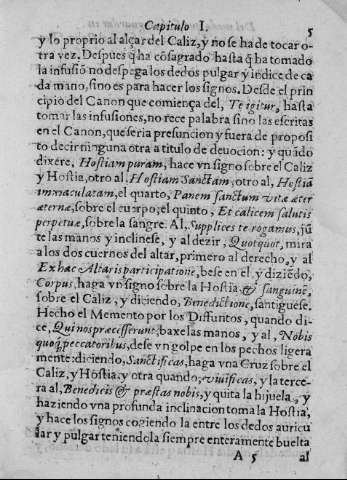 Capitulo I.
5
y lo proprio al alçar del Caliz, y no se ha de tocar o-
tra vez. Despues q̃ha cõsagrado hasta q̃ ha tomado
la infusiõ no despega los dedos pulgar y indice de ca
da mano, sino es para hacer los signos. Desde el prin
cipio del Canon que comiença del, Te igitur, hasta
tomar las infusiones, no rece palabra sino las escritas
en el Canon, que seria presuncion y fuera de proposi
to decir ninguna otra a titulo de deuocion: y quãdo
dixere, Hostiam puram, hace vn signo sobre el Caliz
y Hostia, otro al, Hostiam Sanctam, otro al, Hostiã
immaculatam, el quarto, Panem sanctum vitæ æter
æternæ, sobre el cuerpo, el quinto, Et calicem salutis
perpetuæ, sobre la sangre. Al, Supplices te rogamus, jũ
te las manos y inclinese, y al dezir, Quotquot, mira
a los dos cuernos del altar, primero al derecho, y al
Ex hac Altaris participatione, bese en el, y diziẽdo,
Corpus, haga vn signo sobre la Hostia & sanguinẽ,
sobre el Caliz, y diciendo, Benedictione, santiguese.
Hecho el Memento por los Difuntos, quando di-
ce, Qui nos præcesserunt, baxe las manos, y al, Nobis
quoq; peccatoribus, dese vn golpe en los pechos ligera
mente: diciendo, Sanctificas, haga vna Cruz sobre el
Caliz, y Hostia, y otra quando, viuificas, y la terce-
ra al, Benedicis & præstas nobis, y quita la hijuela, y
haziendo vna profunda inclinacion toma la Hostia,
y hace los signos cogiendo la entre los dedos auricu
lar y pulgar teniendola siempre enteramente buelta
A 5
al